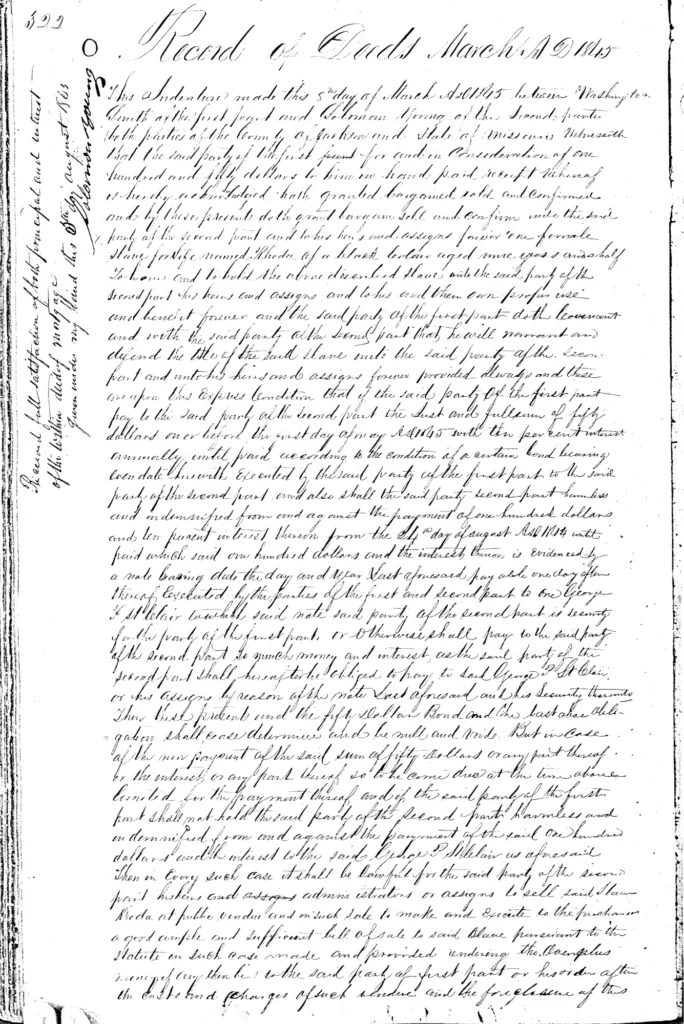 322
Record of Deeds March A D 1845
This Indenture made this 5th day of March AD 1845 between Washington
Smith of the first part and Solomon Young of the Second parte
both parties of the County of Jackson and State of Missouri Witnesseth
that the said party of the first part for and in Consideration of one
hundred and fifty dollars to him in hand paid receipt Whereof
is hereby acknowledged hath granted bargained sold and confirmed
and by these present doth grant bargain sell and confirm unto the said
party of the second part and to his heirs and assigns forever one female
slave for life named Rhoda of a black colour aged nine years and half
To have and to hold the above described slave unto the said party of the
second part his heirs and assigns and to his and them own proper use
and benefit forever and the said party of the first part doth Covenant
and with the said party of the second part that he will warrant and
defend the title of the said slave unto the said party of the secon
part and unto his heirs and assigns forever provided always and these
are upon this Express Condition that if the said party of the first part
pay to the said party of the second part the Just and full sum of fifty
dollars on or before the first day of may AD 1845 with ten per cent interest
annually until paid according to the condition of a certain bond bearing
even date herewith Executed by the said party of the first part to the said
party of the second part and also shall the said party second part harmless
and indemnified from and against the payment of one hundred dollars
and ten percent interest thereon from the 24th day of august AD 1844 until
paid which said one hundred dollars and the interest thereon is Evidenced by
a note bearing date the day and year Last aforesaid payable one day after
thereof Executed by the parties of the first and second part to one George
St Clair to which said note said party of the second part is security
for the party of the first part. or Otherwise shall pay to the said party
of the second part so much money and interest, as the said party of the
second part shall hereafter be obliged to pay to said George St Clair
or his assigns by reason of the note Last aforesaid and his security thereunto
Then these presents and the fifty Dollar Bond and the last above obli-
=gation shall cease determine and be null and void. But in case
of the non payment of the said sum of fifty Dollars or any part thereof
or the interest or any part thereof so to be come due at the time above
limited for the payment thereof and if the said party of the first
part shall not hold the said party of the second part harmless and
indemnified from and against the payment of the said one hundred
dollars and the interest to the said George St Clair as aforesaid
Then in Every such case it shall be Lawful for the said party of the second
part his heirs and assigns administrators or assigns to sell said Slave
Rhoda at public vendue and on such sale to make and Execute to the purchaser
a good ample and sufficient bill of sale to said Slave pursuant to the
statute in such case made and provided rendering the Overplus
money if any there be to the said party of first part or his order after
the costs and charges of such vendue and the foreclosure of this
Received full satisfaction of both principal and interest
of the within deed of mortgage
given under my hand this day august 1845
Solomon Young